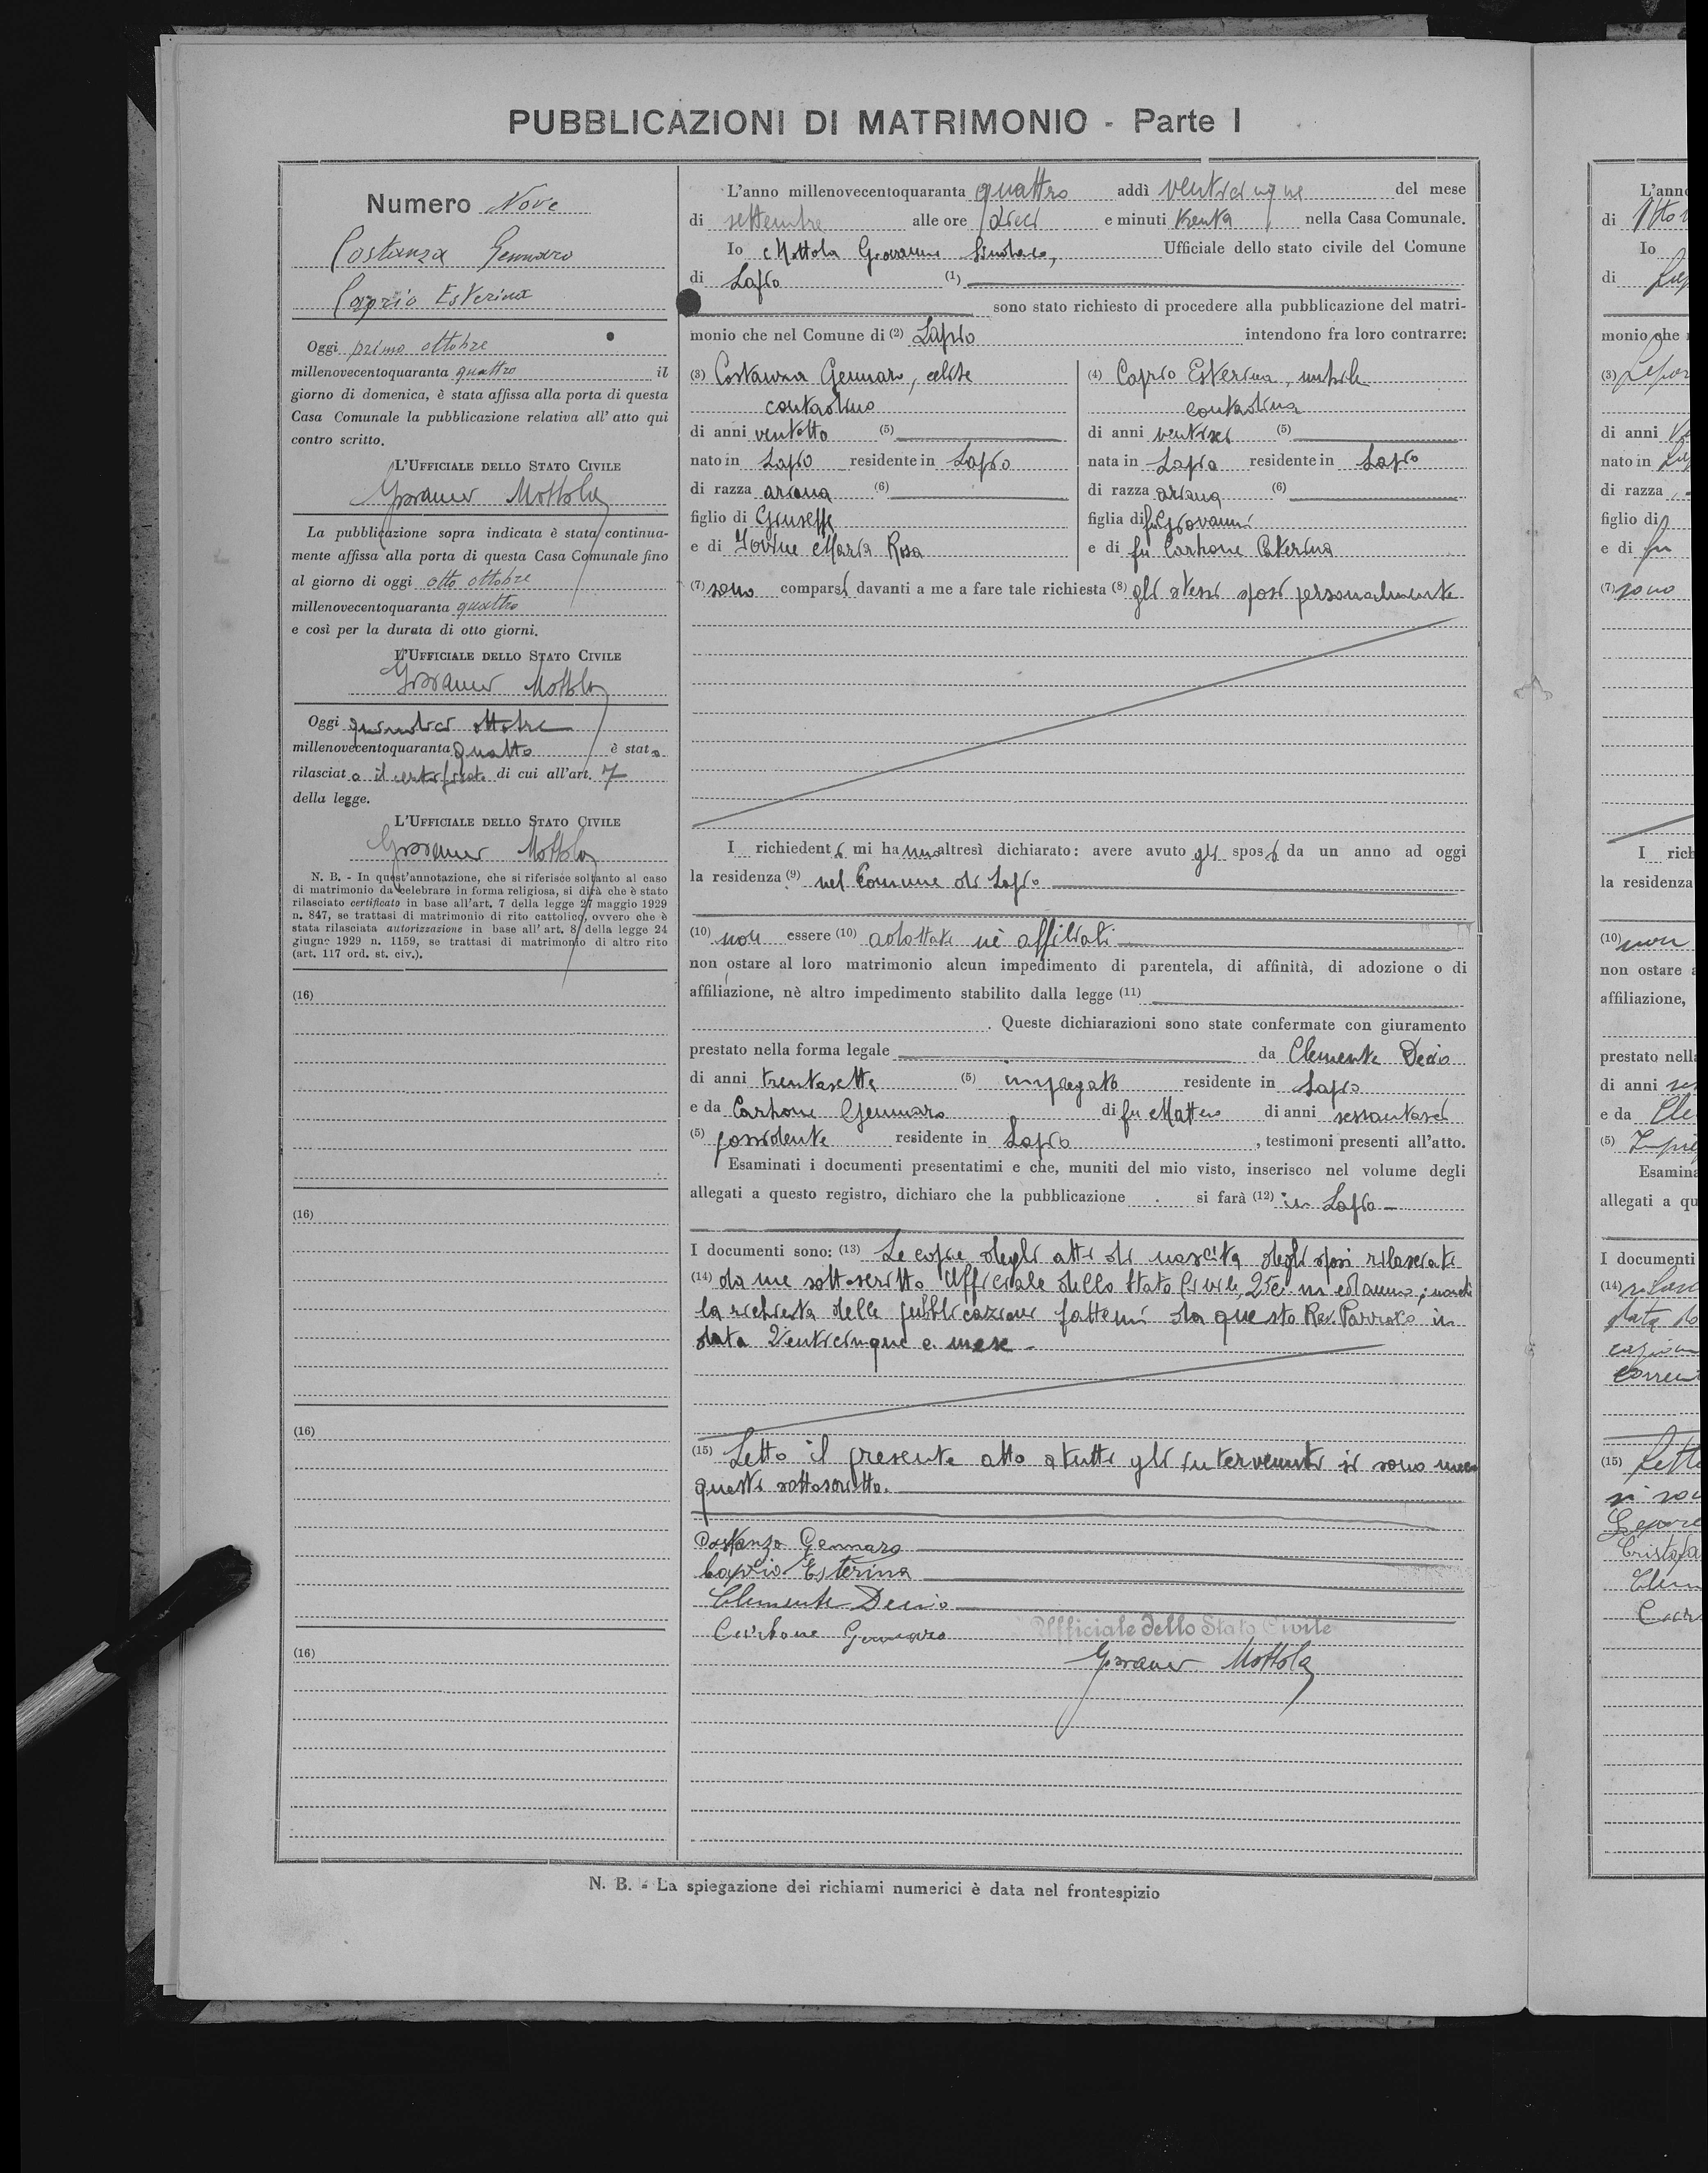 PUBBLICAZIONI DI MATRIMONIO - Parte I
Numero Nove
Costanza Gennaro
Caprio Esterina
Oggi primo ottobre
millenovecentoquaranta quattro il
giorno di domenica, è stata affissa alla porta di questa
Casa Comunale la pubblicazione relativa all' atto qui
contro scritto.
L'UFFICIALE DELLO STATO CIVILE
Giovanni Mottola
La pubblicazione sopra indicata è stata continua-
mente affissa alla porta di questa Casa Comunale fino
al giorno di oggi otto ottobre
millenovecentoquaranta quattro
e così per la durata di otto giorni.
L'UFFICIALE DELLO STATO CIVILE
Giovanni Mottola
Oggi quindici ottobre
millenovecentoquaranta quattro è stato
rilasciato il certificato di cui all'art. 7
della legge.
L'UFFICIALE DELLO STATO CIVILE
Giovanni Mottola
N. B. - In quest'annotazione, che si riferisce soltanto al caso
di matrimonio da celebrare in forma religiosa, si dirà che è stato
rilasciato certificato in base all'art. 7 della legge 27 maggio 1929
n. 847, se trattasi di matrimonio di rito cattolico, ovvero che è
stata rilasciata autorizzazione in base all' art. 8 della legge 24
giugno 1929 n. 1159, se trattasi di matrimonio di altro rito
(art. 117 ord. st. civ.).
(16)
(16)
(16)
(16)
L'anno millenovecentoquaranta quattro addì venticinque del mese
di settembre alle ore dieci e minuti trenta nella Casa Comunale.
Io Mottola Giovanni Sindaco, Ufficiale dello stato civile del Comune
di Lapio (1)
sono stato richiesto di procedere alla pubblicazione del matri-
monio che nel Comune di (2) Lapio intendono fra loro contrarre:
(3) Costanza Gennaro, celibe
contadino
di anni ventotto (5)
nato in Lapio residente in Lapio
di razza ariana (6)
figlio di Giuseppe
e di Iovine Maria Rosa
(4) Caprio Esterina, nubile
contadina
di anni ventisei (5)
nata in Lapio residente in Lapio
di razza ariana (6)
figlia di fu Giovanni
e di fu Carbone Caterina
(7) sono comparsi davanti a me a fare tale richiesta (8) gli stessi sposi personalmente
I richiedenti mi hanno altresì dichiarato: avere avuto gli sposi da un anno ad oggi
la residenza (9) nel Comune di Lapio
(10) non essere (10) adottati nè affiliati
non ostare al loro matrimonio alcun impedimento di parentela, di affinità, di adozione o di
affiliazione, nè altro impedimento stabilito dalla legge (11)
. Queste dichiarazioni sono state confermate con giuramento
prestato nella forma legale da Clemente Decio
di anni trentasette (5) impiegato residente in Lapio
e da Carbone Gennaro di fu Matteo di anni sessantasei
(5) possidente residente in Lapio , testimoni presenti all'atto.
Esaminati i documenti presentatimi e che, muniti del mio visto, inserisco nel volume degli
allegati a questo registro, dichiaro che la pubblicazione si farà (12) in Lapio
I documenti sono: (13) Le copie degli atti di nascita degli sposi rilasciati
(14) da me sottoscritto Ufficiale dello Stato Civile,
la richiesta delle pubblicazioni fattemi da questo Rev. Parroco in
data Venticinque c. mese
(15) Letto il presente atto a tutti gli intervenuti si sono meco
questi sottoscritto.
Costanza Gennaro
Caprio Esterina
Clemente Decio
Carbone Gennaro
Ufficiale dello Stato Civile
Giovanni Mottola
N. B. - La spiegazione dei richiami numerici è data nel frontespizio
L'anno
di
Io
di
monio che
(3)
di anni
nato in
di razza
figlio di
e di fu
(7) sono
I rich
la residenza
(10) non
non ostare a
affiliazione,
prestato nella
di anni
e da Cle
(5)
Esamina
allegati a qu
I documenti
(14)
(15) Letto